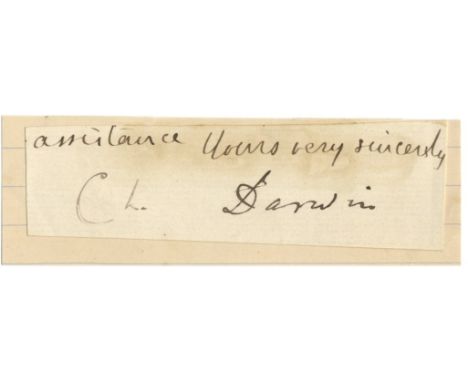 assistance Yours very sincerely
Ch. Darwin